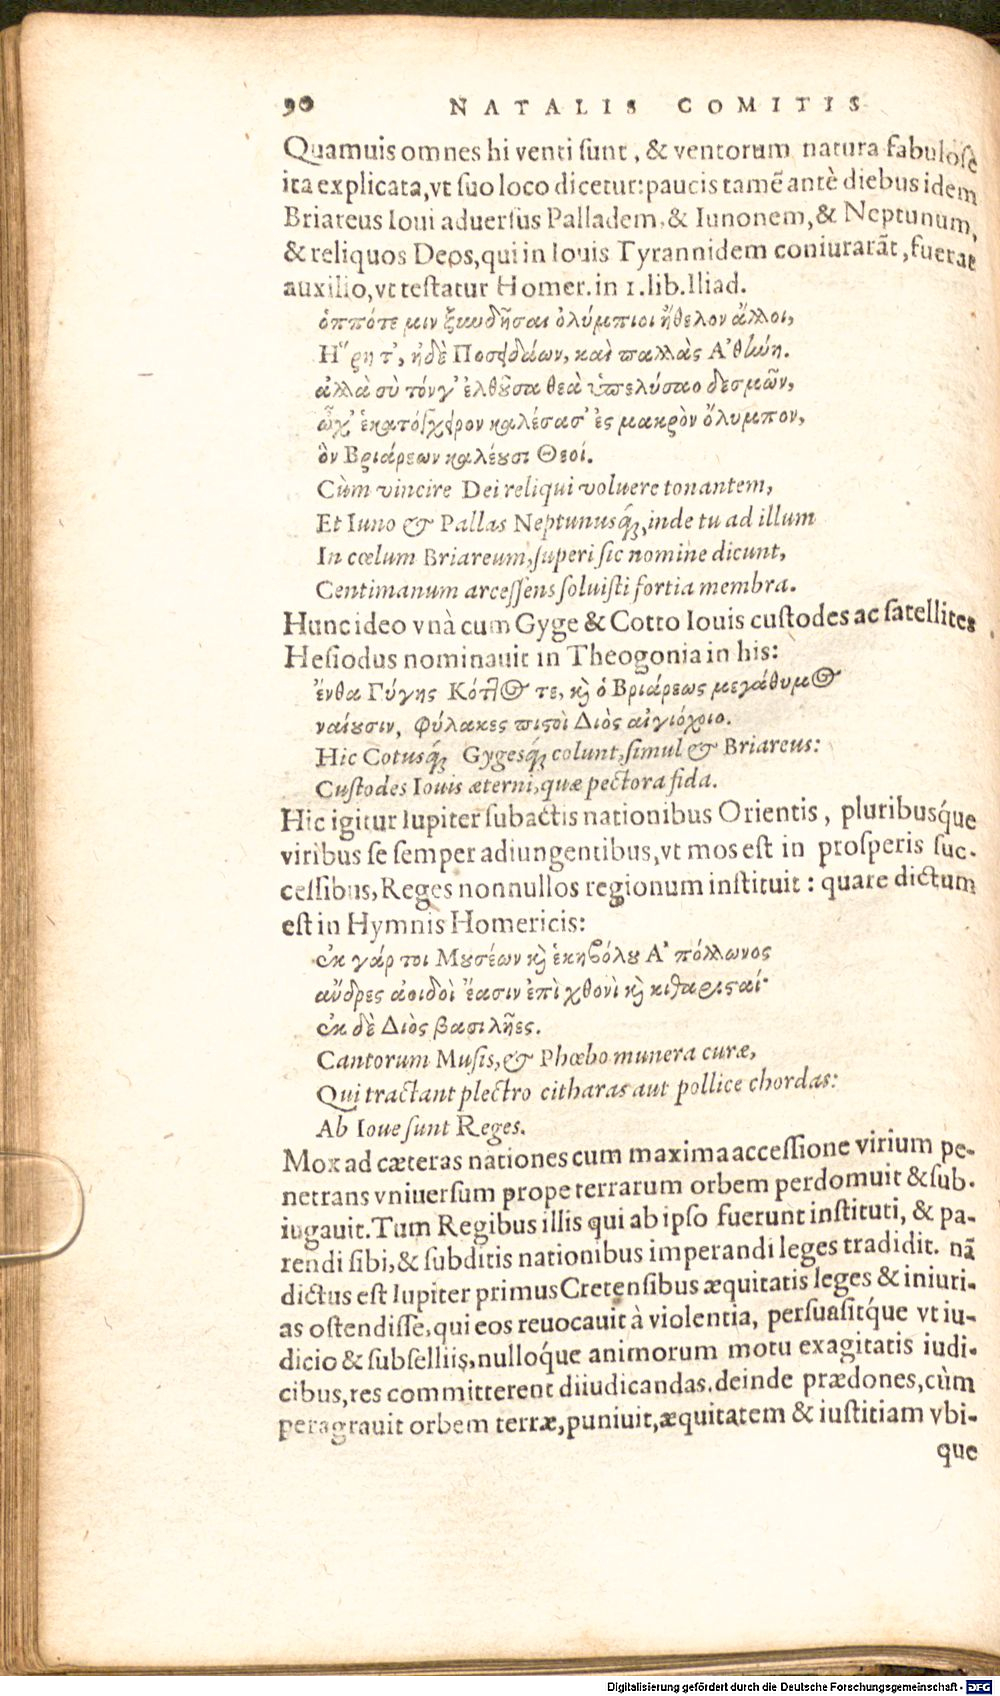 90 NATALIS COMITIS
Quamuis omnes hi venti sunt, & ventorum natura fabulosè
ita explicata, vt suo loco dicetur: paucis tamẽ antè diebus idem
Briareus Ioui aduersus Palladem, & Iunonem, & Neptunum,
& reliquos Deos, qui in Iouis Tyrannidem coniurarãt, fuerat
auxilio, vt testatur Homer. in 1. lib. Iliad.
ὁππότε μιν ξυνδῆσαι ὀλύμπιοι ἤθελον ἄλλοι,
Ἥρη τ', ἠδὲ Ποσειδάων, καὶ παλλὰς Ἀθήνη.
ἀλλὰ σὺ τόνγ' ἐλθοῦσα θεὰ ὑπελύσαο δεσμῶν,
ὦχ' ἑκατόγχειρον καλέσασ' ἐς μακρὸν ὄλυμπον,
ὃν Βριάρεων καλέουσι Θεοί.
Cùm vincire Dei reliqui voluere tonantem,
Et Iuno & Pallas Neptunusq́;, inde tu ad illum
In cœlum Briareum, superi sic nomine dicunt,
Centimanum arcessens soluisti fortia membra.
Hunc ideo vnà cum Gyge & Cotto Iouis custodes ac satellites
Hesiodus nominauit in Theogonia in his:
ἔνθα Γύγης Κόττος τε, καὶ ὁ Βριάρεως μεγάθυμος
ναίουσιν, φύλακες πιστοὶ Διὸς αἰγιόχοιο.
Hic Cotusq́; Gygesq́; colunt, simul & Briareus:
Custodes Iouis æterni, quæ pectora fida.
Hic igitur Iupiter subactis nationibus Orientis, pluribusq́ue
viribus se semper adiungentibus, vt mos est in prosperis suc-
cessibus, Reges nonnullos regionum instituit: quare dictum
est in Hymnis Homericis:
ἐκ γάρ τοι Μουσέων καὶ ἑκηβόλου Ἀπόλλωνος
ἄνδρες ἀοιδοὶ ἔασιν ἐπὶ χθονὶ καὶ κιθαρισταί·
ἐκ δὲ Διὸς βασιλῆες.
Cantorum Musis, & Phœbo munera curæ,
Qui tractant plectro citharas aut pollice chordas:
Ab Ioue sunt Reges.
Mox ad cæteras nationes cum maxima accessione virium pe-
netrans vniuersum prope terrarum orbem perdomuit & sub-
iugauit. Tum Regibus illis qui ab ipso fuerunt instituti, & pa-
rendi sibi, & subditis nationibus imperandi leges tradidit. nã
dictus est Iupiter primus Cretensibus æquitatis leges & iniuri-
as ostendisse, qui eos reuocauit à violentia, persuasitq́ue vt iu-
dicio & subselliis, nulloq́ue animorum motu exagitatis iudi-
cibus, res committerent diiudicandas. deinde prædones, cùm
peragrauit orbem terræ, puniuit, æquitatem & iustitiam vbi-
que
Digitalisierung gefördert durch die Deutsche Forschungsgemeinschaft - DFG